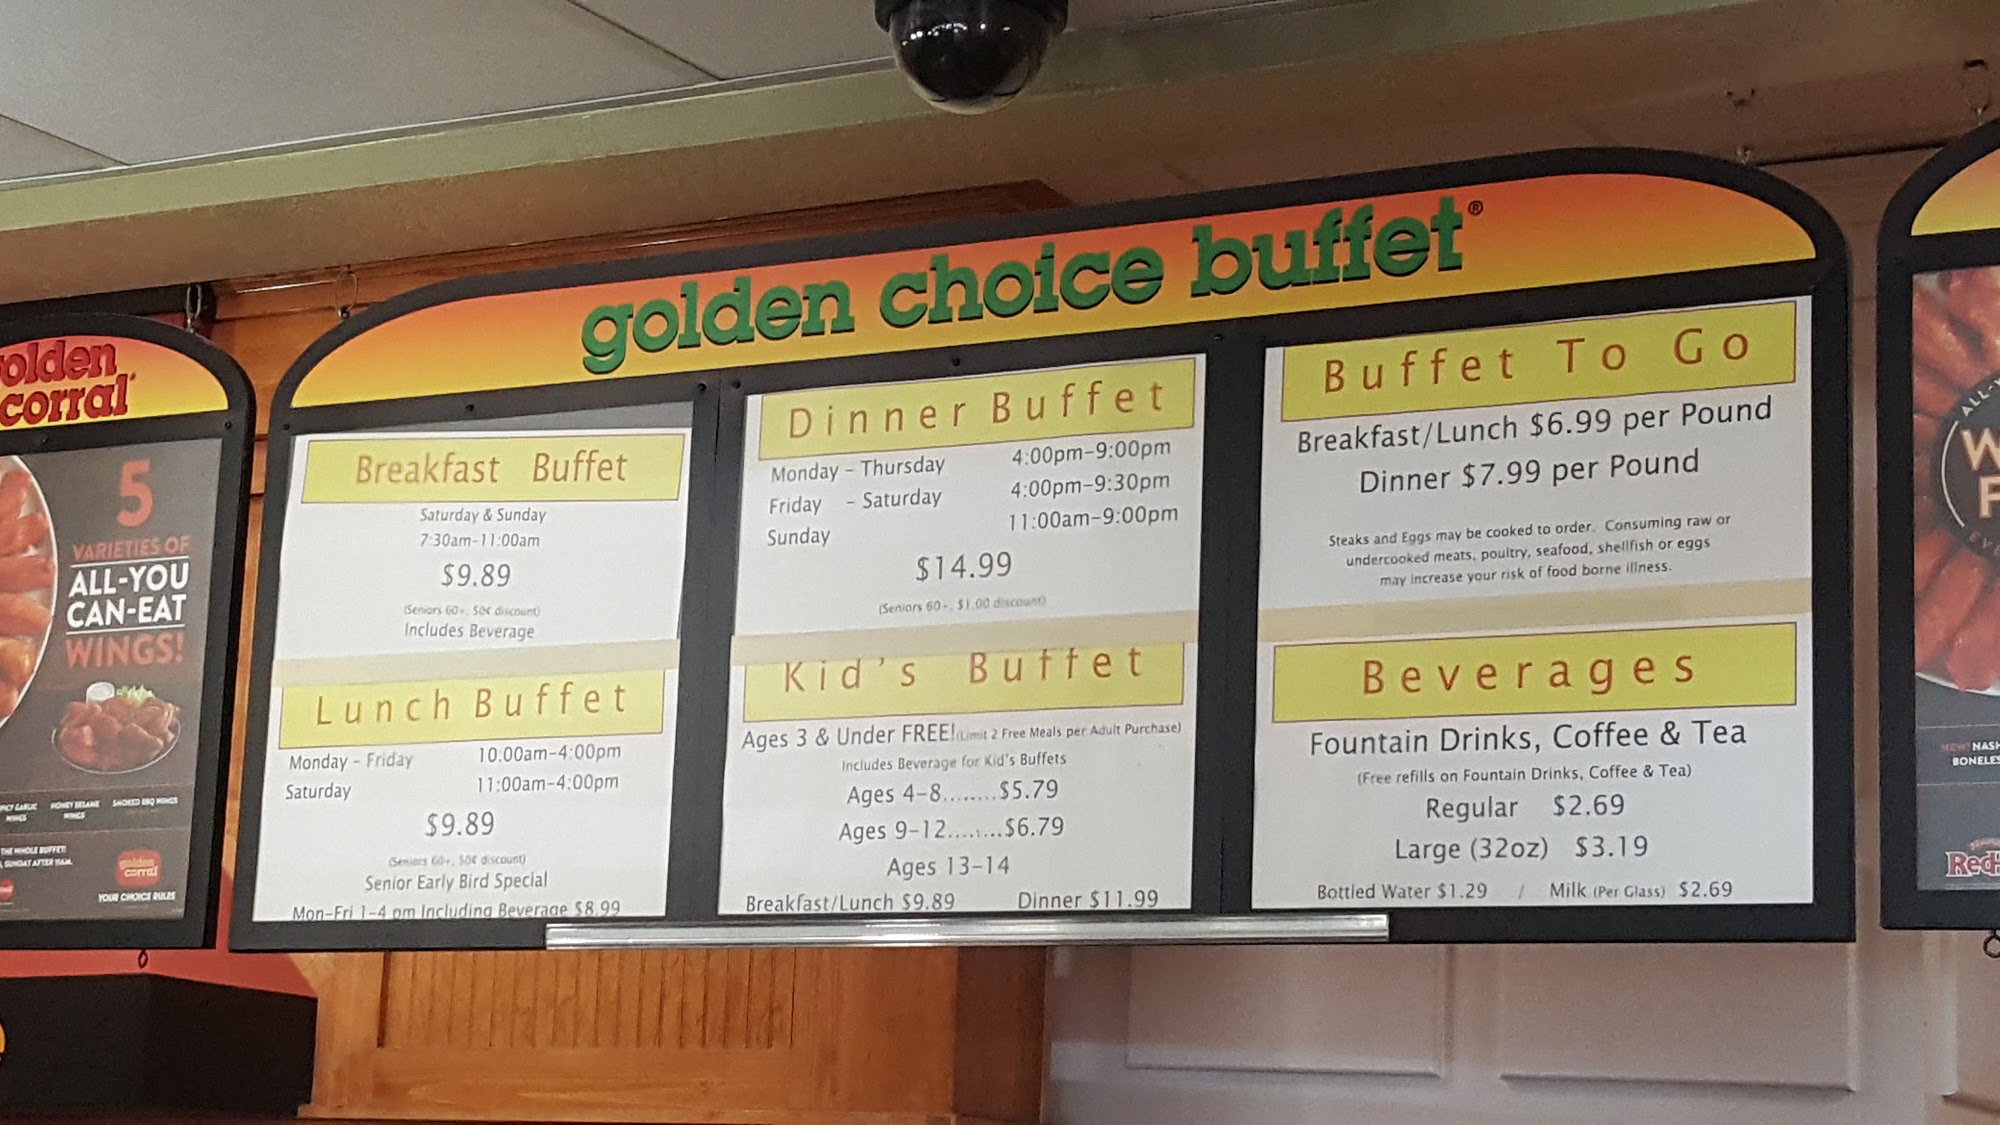 golden choice buffet®
Breakfast Buffet
Saturday & Sunday
7:30am-11:00am
$9.89
(Seniors 60+, 50¢ discount)
Includes Beverage
Lunch Buffet
Monday - Friday 10:00am-4:00pm
Saturday 11:00am-4:00pm
$9.89
(Seniors 60+, 50¢ discount)
Senior Early Bird Special
Mon-Fri 1-4 pm Including Beverage $8.99
Dinner Buffet
Monday - Thursday 4:00pm-9:00pm
Friday - Saturday 4:00pm-9:30pm
Sunday 11:00am-9:00pm
$14.99
(Seniors 60+, $1.00 discount)
Kid's Buffet
Ages 3 & Under FREE! (Limit 2 Free Meals per Adult Purchase)
Includes Beverage for Kid's Buffets
Ages 4-8........$5.79
Ages 9-12........$6.79
Ages 13-14
Breakfast/Lunch $9.89 Dinner $11.99
Buffet To Go
Breakfast/Lunch $6.99 per Pound
Dinner $7.99 per Pound
Steaks and Eggs may be cooked to order. Consuming raw or
undercooked meats, poultry, seafood, shellfish or eggs
may increase your risk of food borne illness.
Beverages
Fountain Drinks, Coffee & Tea
(Free refills on Fountain Drinks, Coffee & Tea)
Regular $2.69
Large (32oz) $3.19
Bottled Water $1.29 / Milk (Per Glass) $2.69
olden
corral
5
VARIETIES OF
ALL-YOU
CAN-EAT
WINGS!
GARLIC WINGS
HONEY SESAME WINGS
SMOKED BBQ WINGS
THE WHOLE BUFFET!
SUNDAY AFTER 11AM.
golden
corral
YOUR CHOICE RULES
ALL-
W
F
EVE
NEW! NASH
BONELES
RedH